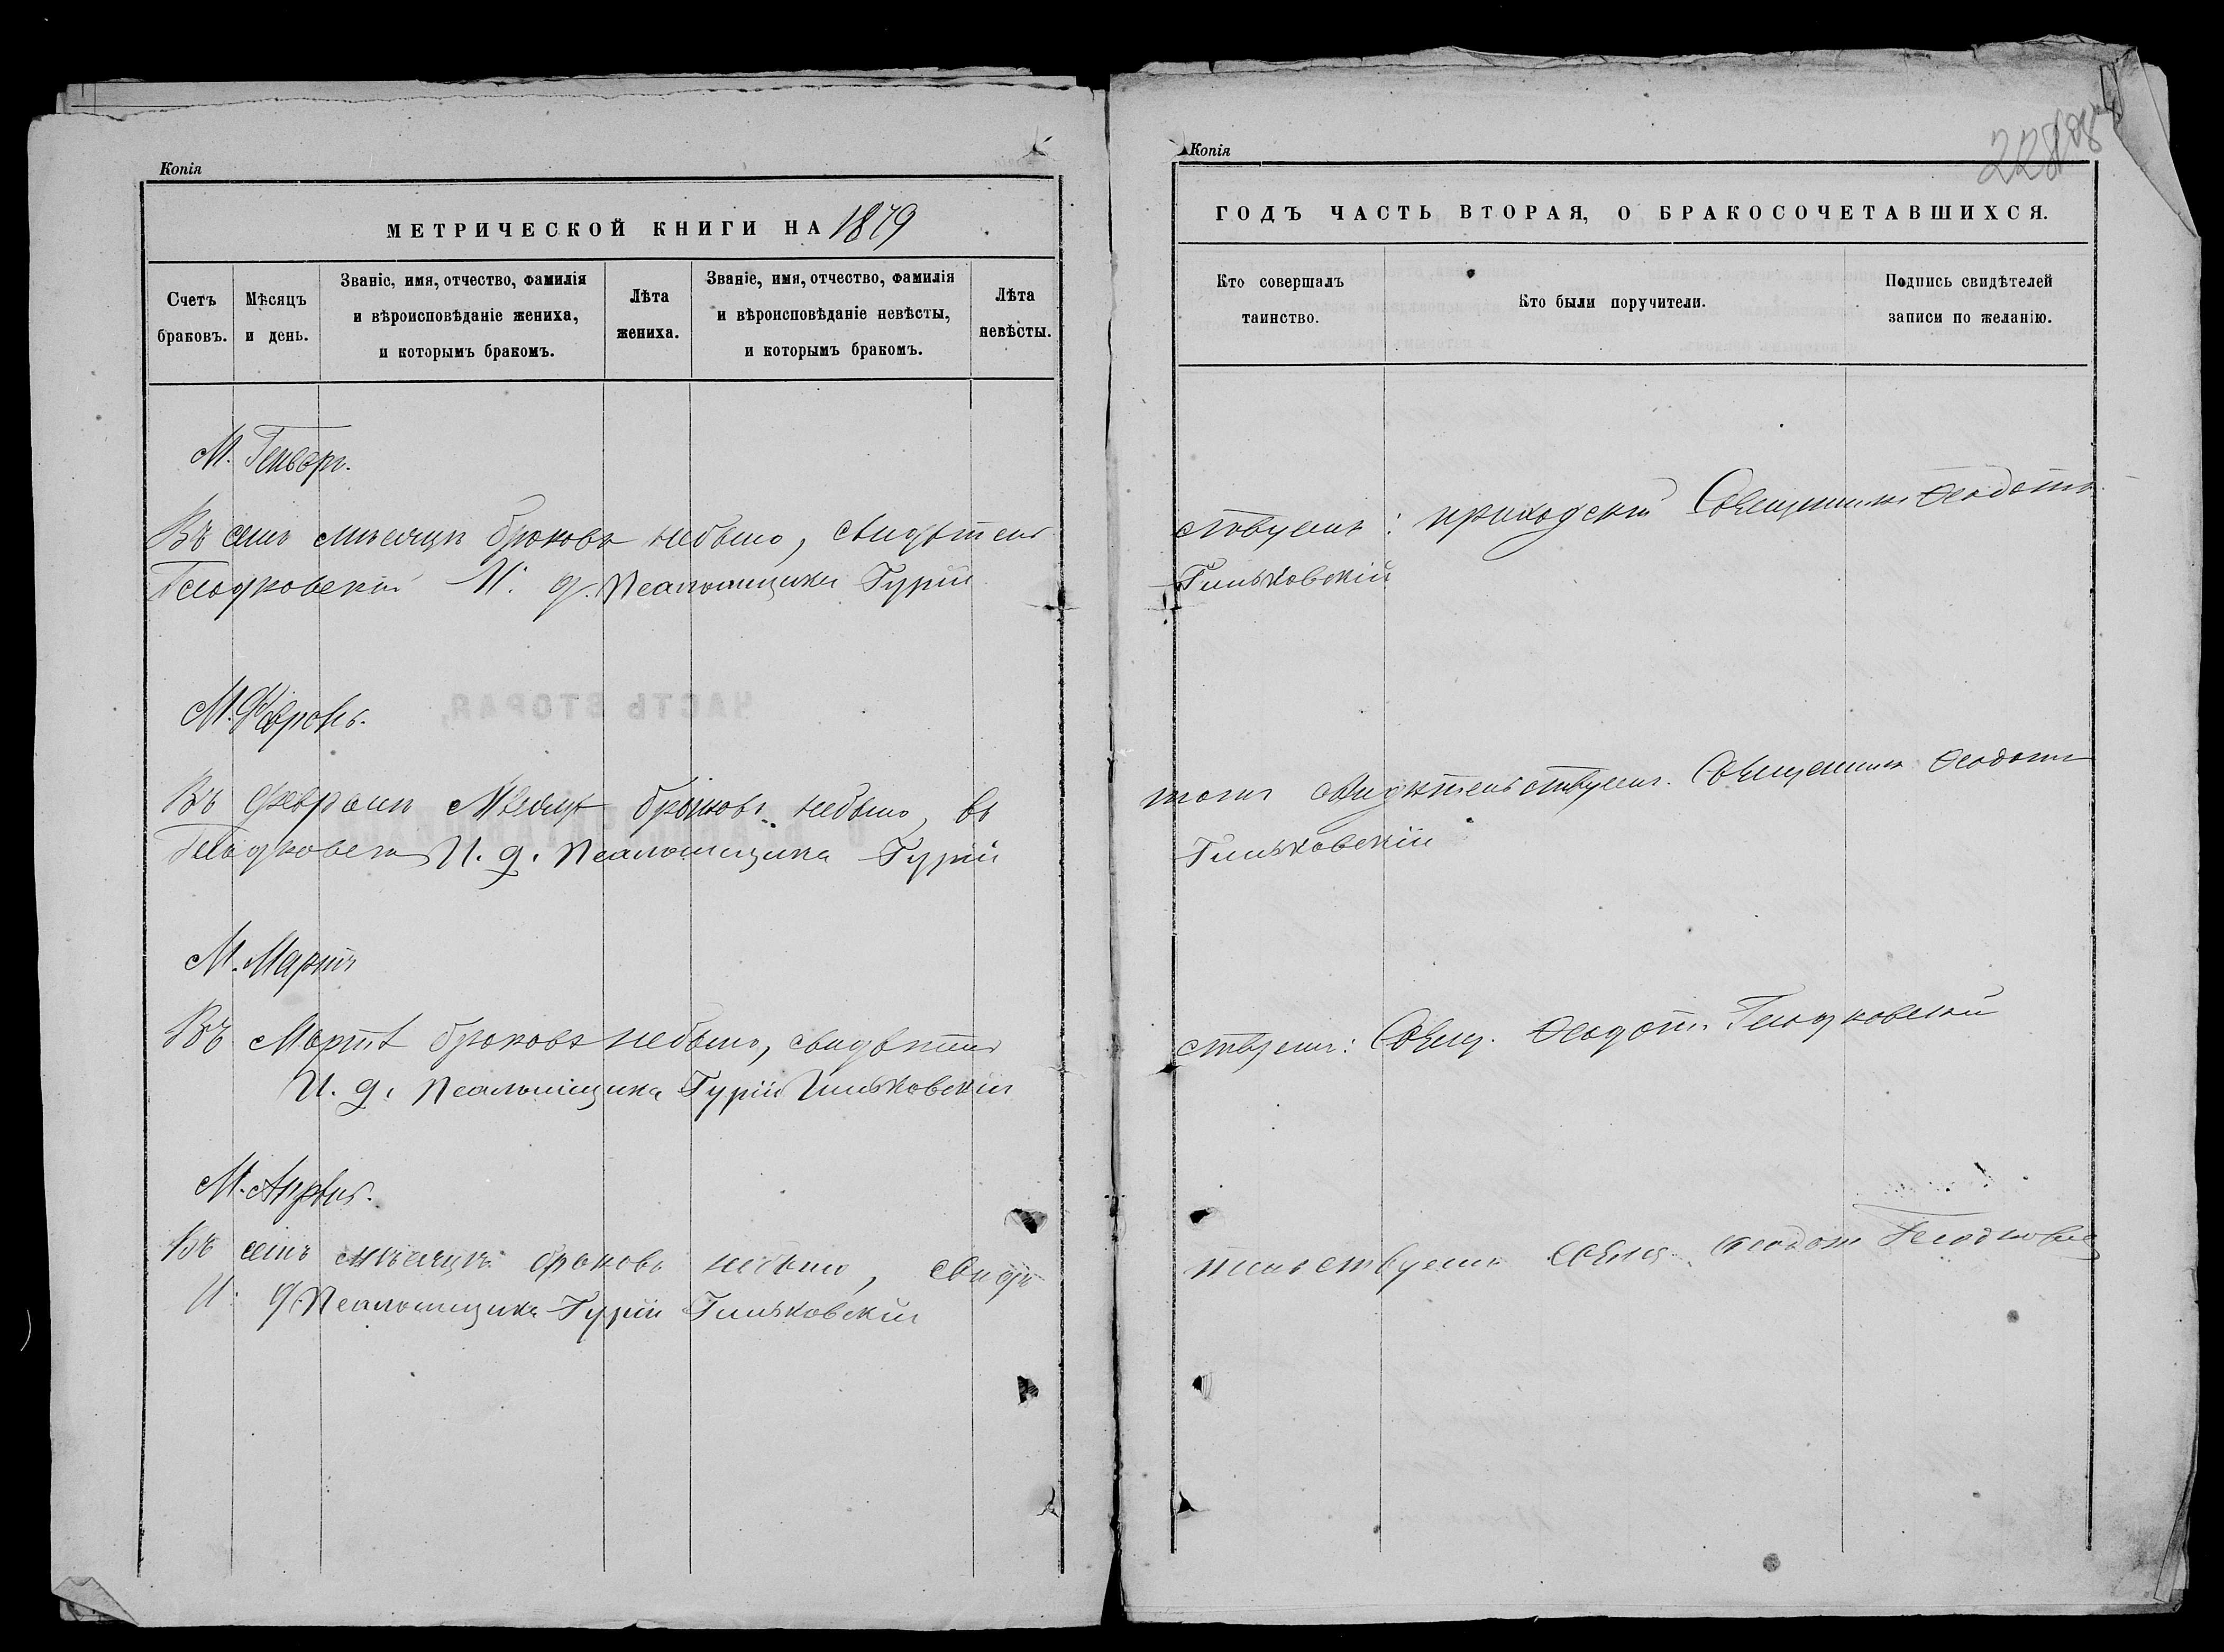 Копія
МЕТРИЧЕСКОЙ КНИГИ НА 1879
Счетъ браковъ.
Мѣсяцъ и день.
Званіе, имя, отчество, фамилія и вѣроисповѣданіе жениха, и которымъ бракомъ.
Лѣта жениха.
Званіе, имя, отчество, фамилія и вѣроисповѣданіе невѣсты, и которымъ бракомъ.
Лѣта невѣсты.
М. Генварь.
Въ семъ мѣсяцѣ браковъ небыло, свидѣтель
И. д. Псаломщика Гурій
М. Февраль.
Въ Февралѣ Мѣсяцѣ браковъ небыло, въ
И. д. Псаломщика Гурій
М. Мартъ
Въ Мартѣ браковъ небыло, свидѣтель
И. д. Псаломщика Гурій Гиньковскій
М. Апрѣль.
Въ семъ мѣсяцѣ браковъ небыло, свидѣ
И. д. Псаломщика Гурій Гиньковскій
Копія
228
ГОДЪ ЧАСТЬ ВТОРАЯ, О БРАКОСОЧЕТАВШИХСЯ.
Кто совершалъ таинство.
Кто были поручители.
Подпись свидѣтелей записи по желанію.
ствуемъ: приходскій Священникъ Феодотъ
Гиньковскій
томъ свидѣтельствуемъ. Священникъ Феодотъ
Гиньковскій
ствуемъ: Свящ. Феодотъ
тельствуемъ Свящ. Феодотъ